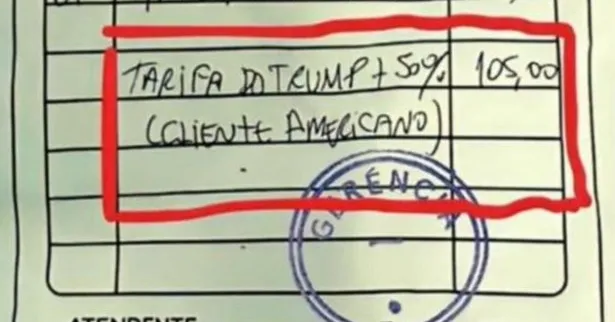 TARIFA DO TRUMP + 50% 105,00
(CLIENTE AMERICANO)
GERÊNCIA
ATENDENTE